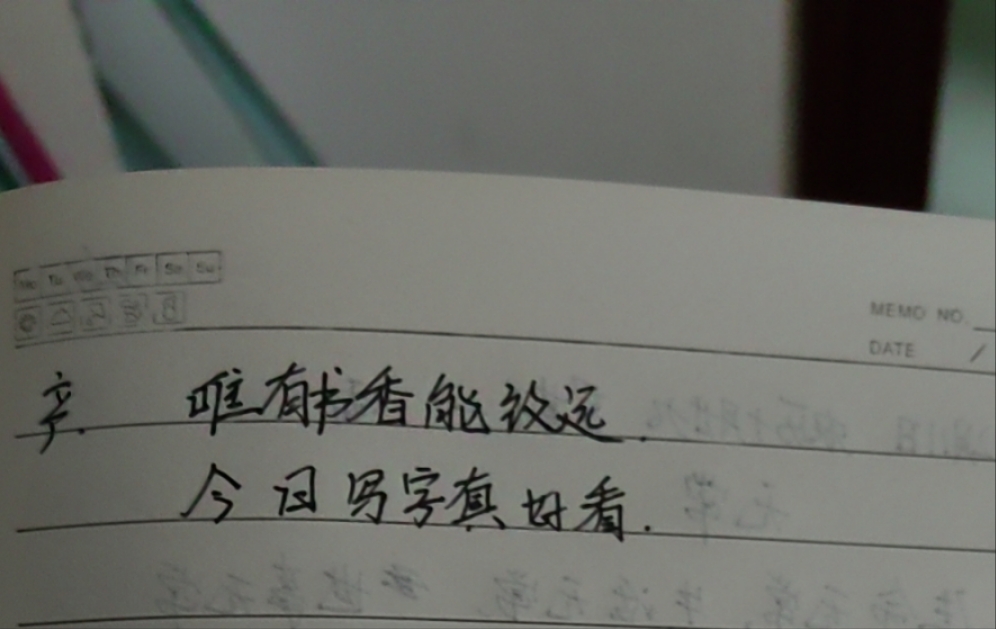 Mo Tu We Th Fr Sa Su
MEMO NO.
DATE /
唯有书香能致远.
今日写字真好看.